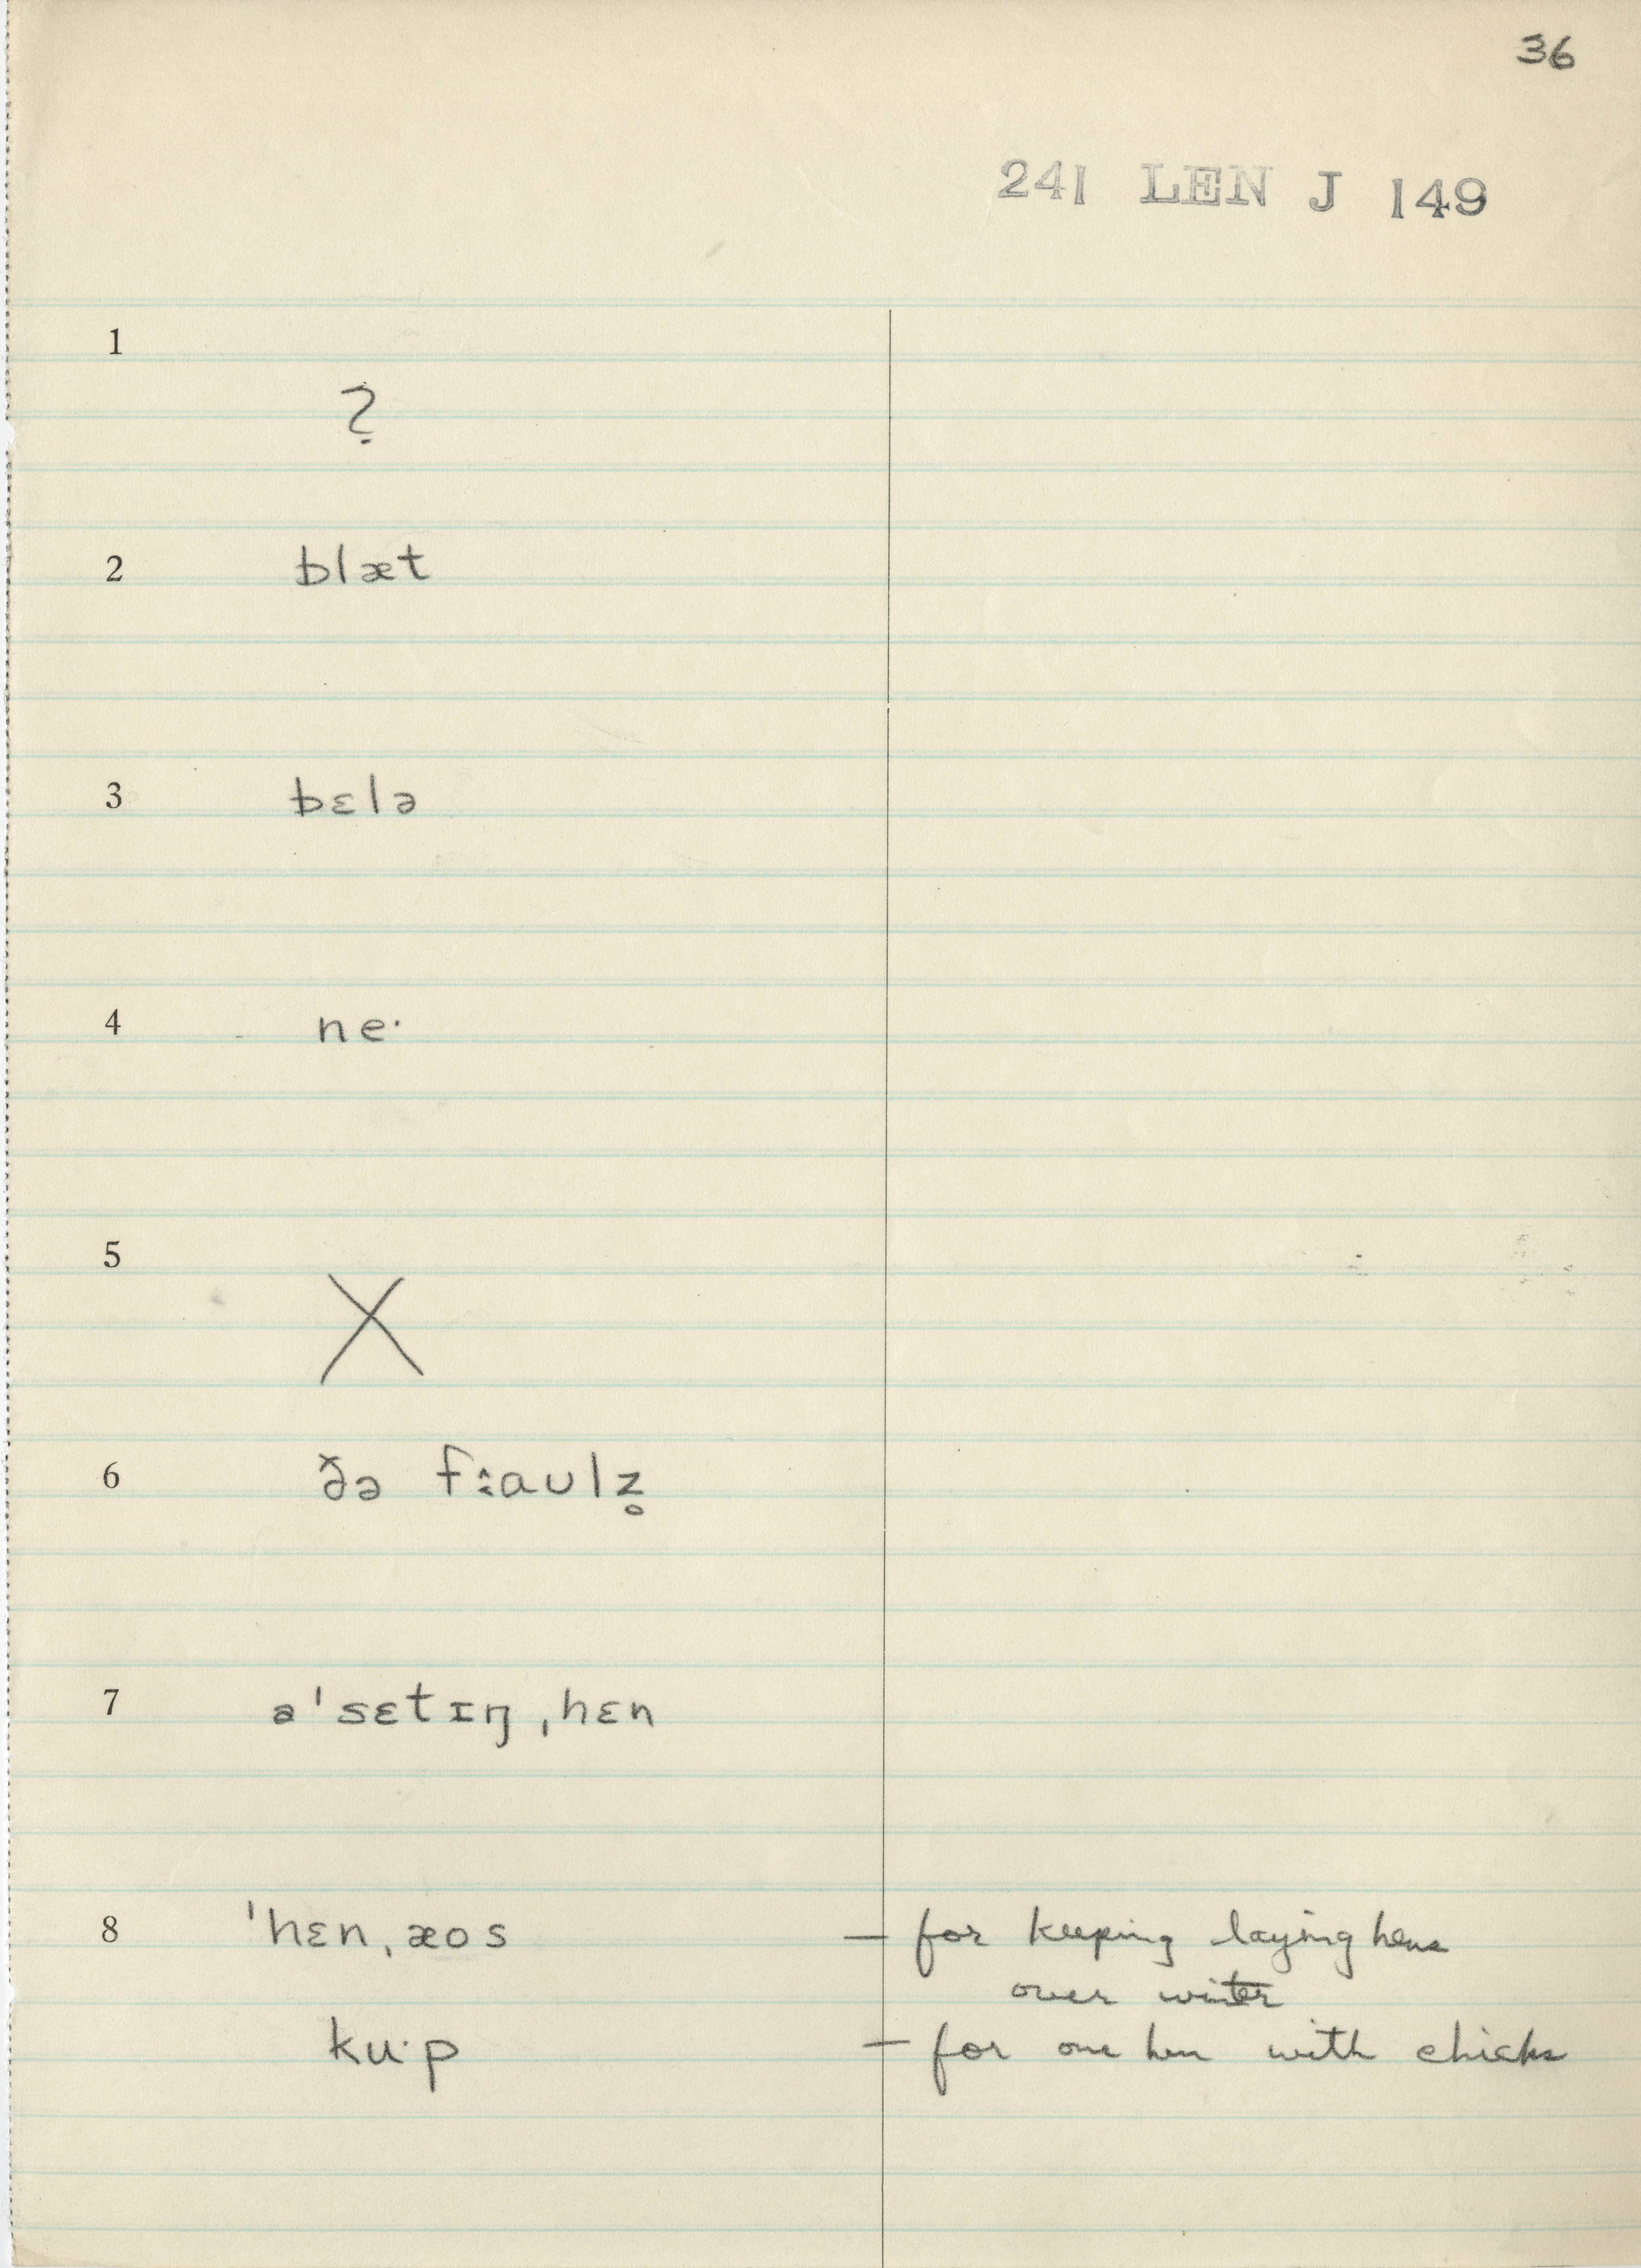 36
241 LEN J 149
1
?
2 blæt
3 bɛlə
4 ne·
5
X
6 ðə fːaʊlz̥
7 ə'sɛtɪŋˌhɛn
8 'hɛnˌæos — for keeping laying hens
over winter
ku·p — for one hen with chicks